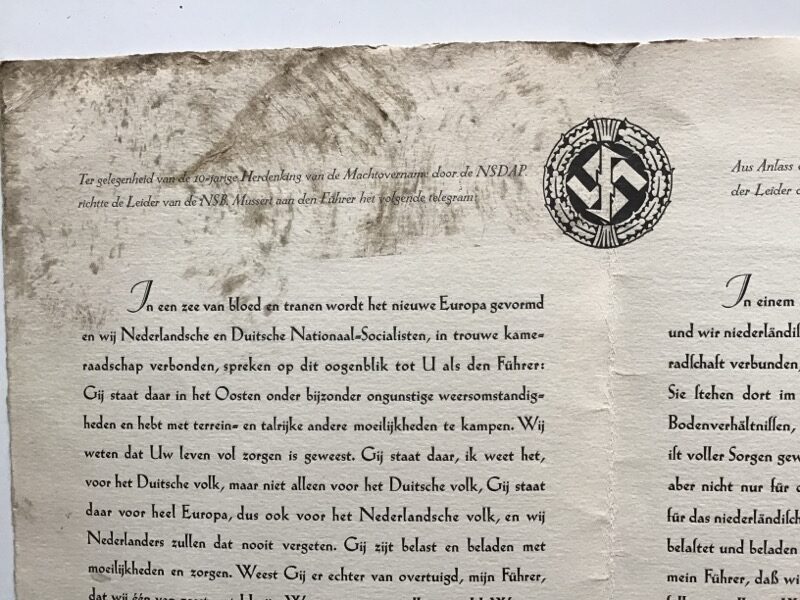 Ter gelegenheid van de 10-jarige Herdenking van de Machtovername door de NSDAP.
richtte de Leider van de NSB. Mussert aan den Führer het volgende telegram:
In een zee van bloed en tranen wordt het nieuwe Europa gevormd
en wij Nederlandsche en Duitsche Nationaal-Socialisten, in trouwe kame-
raadschap verbonden, spreken op dit oogenblik tot U als den Führer:
Gij staat daar in het Oosten onder bijzonder ongunstige weersomstandig-
heden en hebt met terrein- en talrijke andere moeilijkheden te kampen. Wij
weten dat Uw leven vol zorgen is geweest. Gij staat daar, ik weet het,
voor het Duitsche volk, maar niet alleen voor het Duitsche volk, Gij staat
daar voor heel Europa, dus ook voor het Nederlandsche volk, en wij
Nederlanders zullen dat nooit vergeten. Gij zijt belast en beladen met
moeilijkheden en zorgen. Weest Gij er echter van overtuigd, mijn Führer,
dat wij één van
Aus Anlass
der Leider
In einem
und wir niederländiſ
radſchaft verbunden,
Sie ſtehen dort im
Bodenverhältniſſen,
iſt voller Sorgen gew
aber nicht nur für
für das niederländiſch
belaſtet und beladen
mein Führer, daß wi